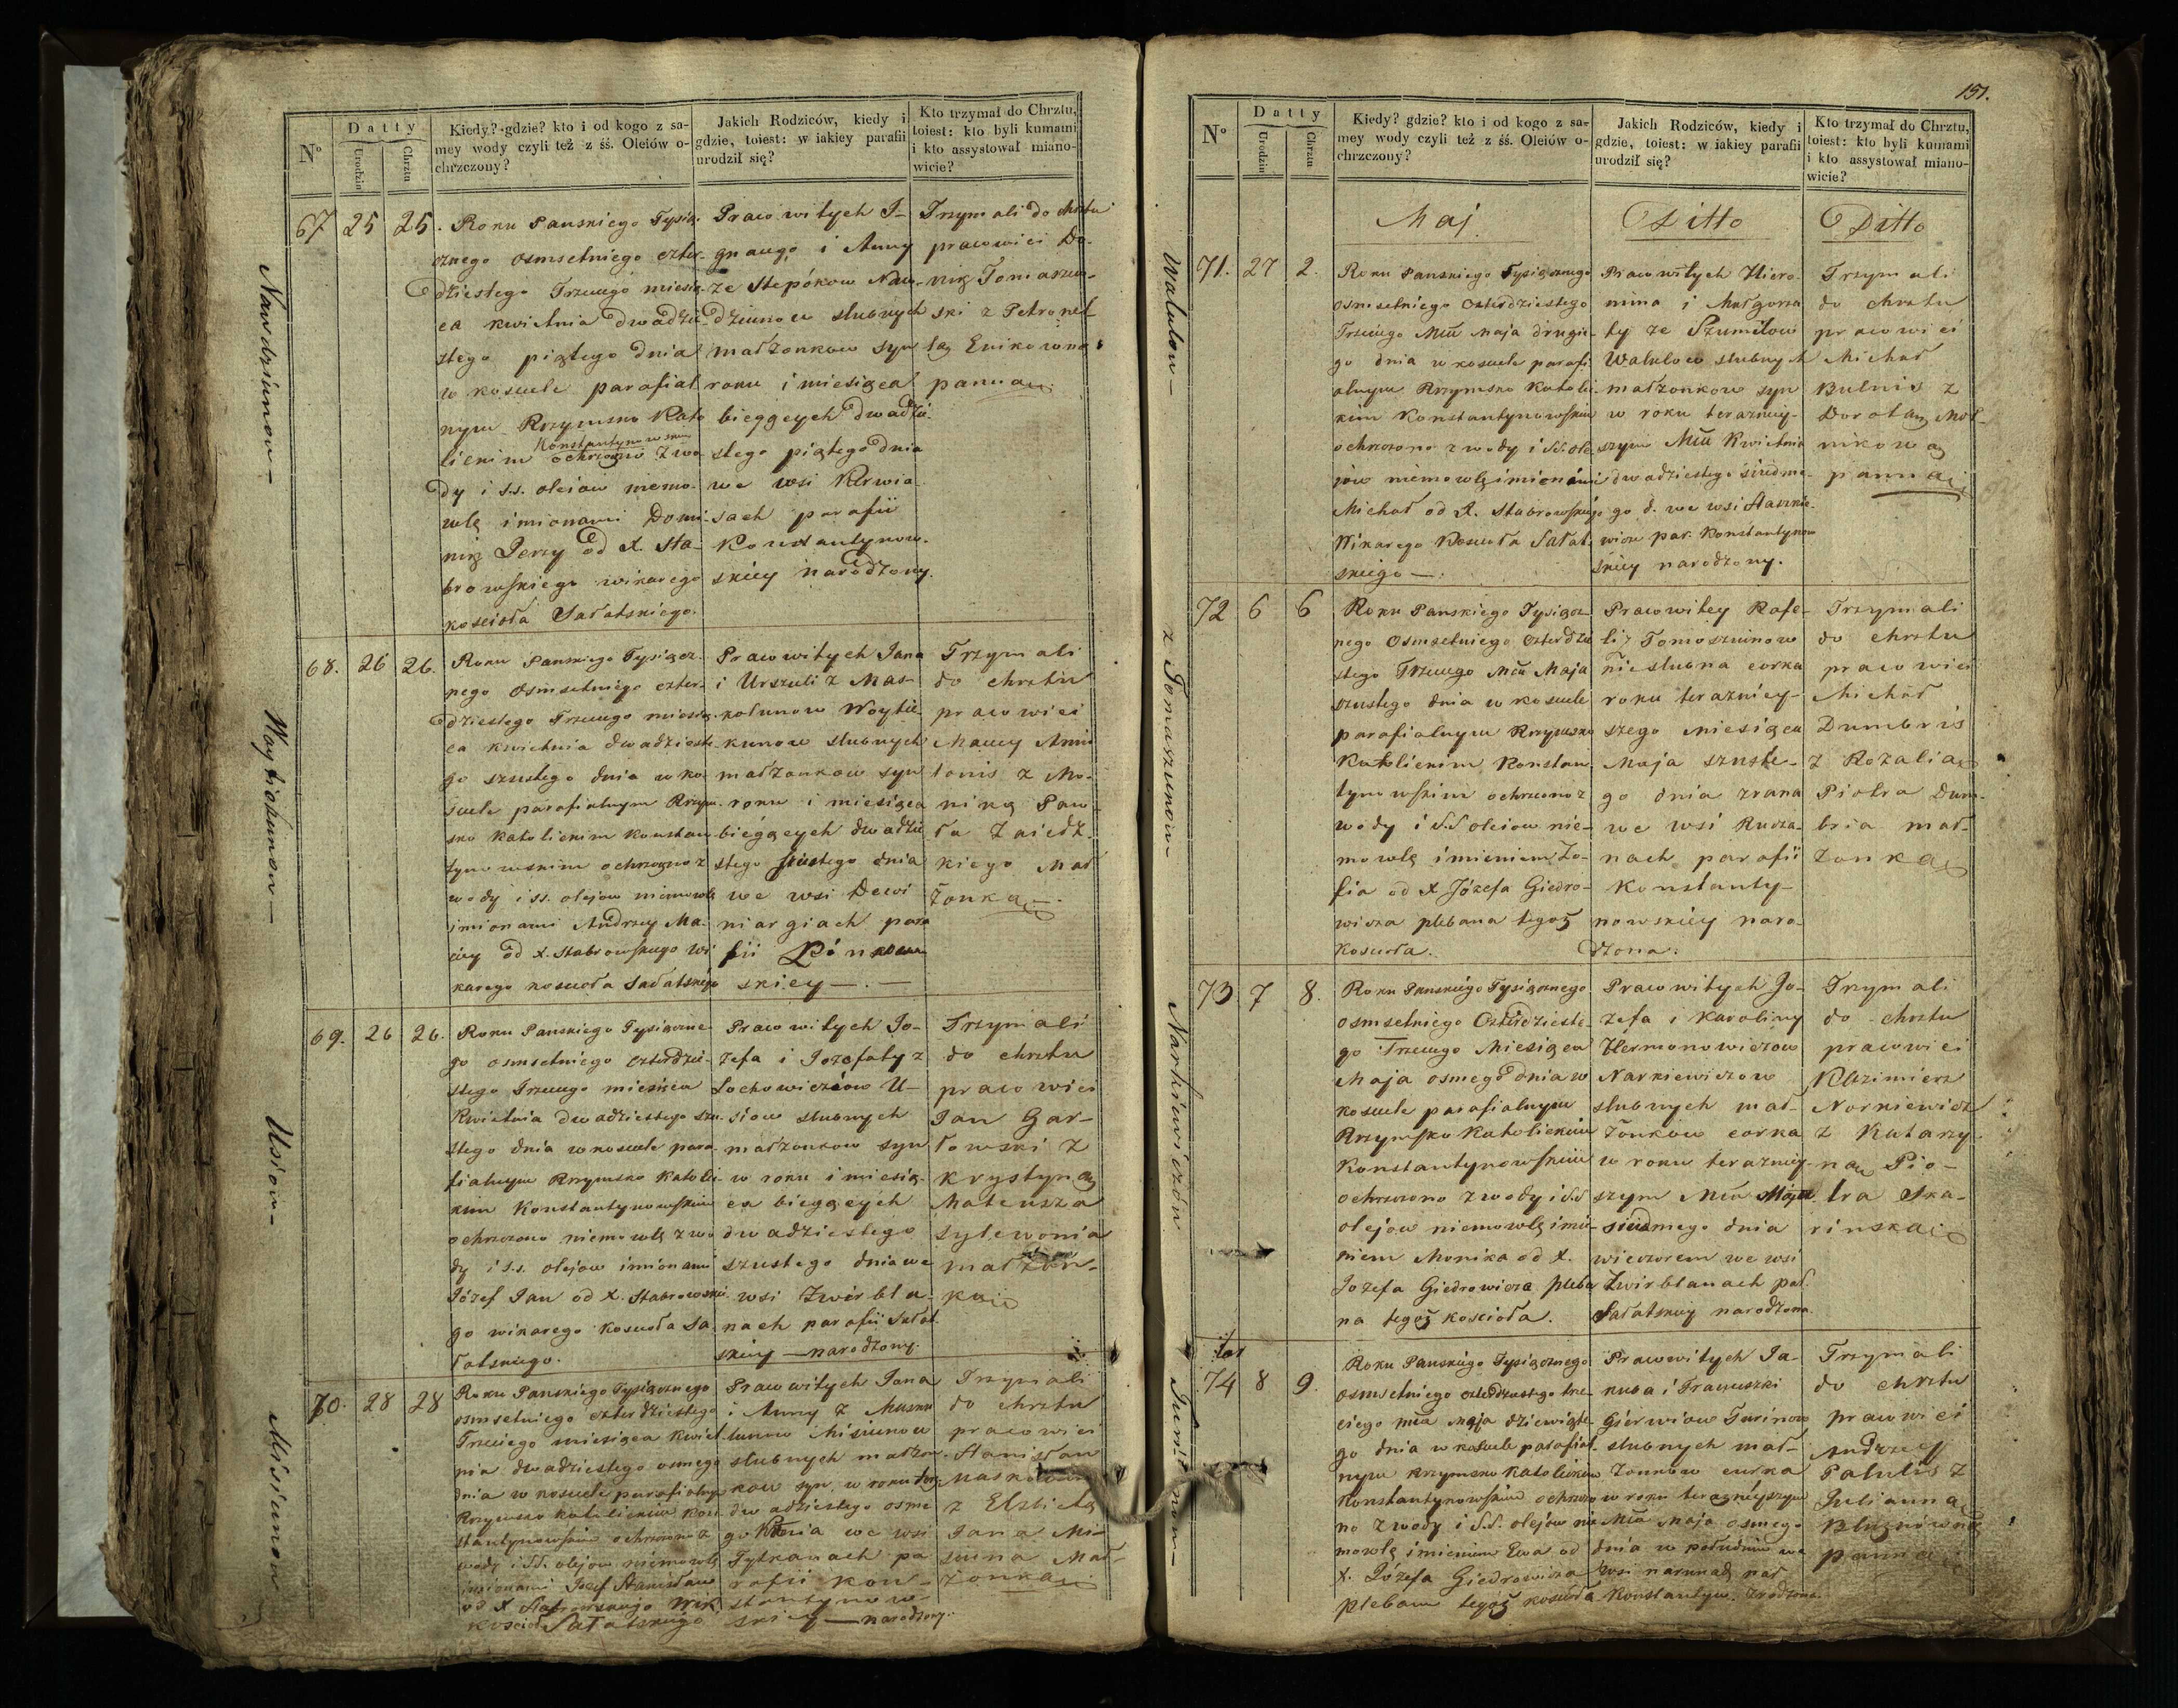 N° Datty Urodzin Chrztu
Kiedy? gdzie? kto i od kogo z sa-
mey wody czyli też z śś. Oleiów o-
chrzczony?
Jakich Rodziców, kiedy i
gdzie, toiest: w iakiey parafii
urodził się?
Kto trzymał do Chrztu,
toiest: kto byli kumami
i kto assystował miano-
wicie?
Nawdziunow —
67 25 25.
Roku Panskiego Tysią-
cznego osmsetniego czter-
dziestego Trzeciego miesią-
ca kwietnia dwadzie-
stego piątego dnia
w kosciele parafial
nym Rzymsko Kato
lickim Konstantynowskim ochrzczono z wo
dy i s.s. oleiow niemo-
wlę imionami Domi-
nik Jerzy od X. Sta-
browskiego wikarego
kościoła Sałatskiego.
Pracowitych I-
gnacego i Anny
ze Stepókow Naw-
dziunow slubnych
małżonkow syn
roku i miesiąca
bieżących dwadzie
stego piątego dnia
we wsi Kirwia
sach parafii
Konstantynow-
skiey narodzony.
Trzymali do chrztu
pracowici Do-
nik Tomaszew-
ski z Petronel
lą
panną.
Woytiekunow —
68. 26 26.
Roku Panskiego Tysiącz-
nego osmsetniego czter-
dziestego Trzeciego miesią-
ca kwietnia dwadzieste
go szustego dnia w ko
sciele parafialnym Rzym-
sko katolickim konstan
tynowskim ochrzczono z
wody i ss. olejow niemowle
imionami Andrzey Ma-
ciey od X. Stabrowskiego wi
karego kosciola Sałatskiego
Pracowitych Jana
i Urszuli z Mas-
kolunow Woytie
kunow slubnych
małżonkow syn
roku i miesiąca
bieżących dwadzie
stego szustego dnia
we wsi Dewi
niargiach para
fii
skiey —.—
Trzymali
do chrztu
pracowici
Maciey
z Mo-
niką Paw-
ła
kiego Mał
żonką —.
Usiow —
69. 26 26.
Roku Panskiego Tysiączne
go osmsetniego czterdzie-
stego Trzeciego miesiąca
Kwietnia dwadziestego szu-
stego dnia w kosciele para-
fialnym Rzymsko katolic
kim Konstantynowskim
ochrzczono niemowlę z wo
dy i s.s. olejow imionami
Józef Jan od X. Stabrowskie
go wikarego kosciola Sa
łatskiego.
Pracowitych Jo-
zefa i Jozefaty z
Lochowiczów U-
siow slubnych
małżonkow syn
w roku i miesią-
ca bieżących
dwadziestego
szustego dnia we
wsi Zwirbla-
nach parafii Sałat-
skiey — narodzony.
Trzymali
do chrztu
pracowici
Jan Gar-
łowski z
krystyną
Mateusza
małżon-
ką
Misiunow
70. 28 28
Roku Panskiego Tysiącznego
osmsetniego czterdziestego
Trzeciego miesiąca kwiet-
nia dwadziestego osmego
dnia w kosciele parafialnym
Rzymsko katolickim kon
stantynowskim ochrzczono z
wody i SS. olejow niemowlę
imionami Jozef Stanisław
od X Stabrowskiego Wik
kosciola Sałatskiego
Pracowitych Jana
i Anny z Musku
lunow Misiunow
slubnych małżon
kow syn w roku
dwadziestego osme
go dnia we wsi
Tytkanach pa
rafii kon-
stantynow-
skiey — narodzony.
Trzymali
do chrztu
pracowici
Stanisław
z Elzbietą
Jana Mi-
siuna Mał-
żonką
151.
N° Datty Urodzin Chrztu
Kiedy? gdzie? kto i od kogo z sa-
mey wody czyli też z śś. Oleiów o-
chrzczony?
Jakich Rodziców, kiedy i
gdzie, toiest: w iakiey parafii
urodził się?
Kto trzymał do Chrztu,
toiest: kto byli kumami
i kto assystował miano-
wicie?
Maj. Ditto Ditto
Walulow —
71. 27 2.
Roku Panskiego Tysiącznego
osmsetniego czterdziestego
Trzeciego Mca Maja drugie-
go dnia w kosciele parafi
alnym Rzymsko Katolic-
kim Konstantynowskim
ochrzczono z wody i SS. ole
jow niemowlę imionami
Michał od X. Stabrowskiego
Wikarego Kosciola Sałat-
skiego —.
Pracowitych Hiero-
nima i Małgorza
ty ze Szumiłow
Walulow slubnych
małżonkow syn
w roku terazniey-
szym Mca Kwietnia
dwadziestego siedme-
go d. we wsi Staszkie-
wiczu par. Konstantynow
skiey narodzony.
Trzymali
do chrztu
pracowici
Michał
Bulnis z
Dorotą
nikową
panną
z Tomaszunow —
72 6 6
Roku Panskiego Tysiącz-
nego Osmsetniego czterdzie
stego Trzeciego Mca Maja
szustego dnia w kosciele
parafialnym Rzymsko
Katolickim Konstan-
tynowskim ochrzczono z
wody i S.S oleiow nie-
mowlę imieniem Zo-
fia od X Józefa Giedro-
wicza plebana tegoż
kosciola.
Pracowitey Rafe-
li z Tomaszunow
nieslubna corka
roku terazniey-
szego Miesiąca
Maja szuste-
go dnia zrana
we wsi Rudza-
nach parafii
Konstanty-
nowskiey naro-
dzona.
Trzymali
do chrztu
pracowici
Michał
Dumbris
z Rozalią
Piotra Dum-
bria mał-
żonką
Narkiewiczów
73 7 8.
Roku Panskiego Tysiącznego
osmsetniego Czterdzieste-
go Trzeciego Miesiąca
Maja osmego dnia w
kosciele parafialnym
Rzymsko Katolickim
Konstantynowskim
ochrzczono z wody i S.S
olejow niemowlę imie-
niem Monika od X.
Jozefa Giedrowicza pleba
na tegoż kościoła.
Pracowitych Jo-
zefa i Karoliny
Hermonowiczow
Narkiewiczow
slubnych mał-
żonkow corka
w roku terazniey-
szym Mca Maja
siedmego dnia
wieczorem we wsi
Zwirblanach par.
Sałatskiey narodzona.
Trzymali
do chrztu
pracowici
Kazimierz
Norkiewicz
z Katarzy-
ną Pio-
tra Ska-
rinską
Turinow —
74 8 9.
Roku Panskiego Tysiącznego
osmsetniego czterdziestego trze-
ciego mca Maja dziewiąte-
go dnia w kosciele parafial-
nym Rzymsko katolickim
Konstantynowskim ochrzczo
no z wody i S.S. olejow nie
mowlę imieniem Ewa od
X. Józefa Giedrowicza
plebana tegoż kosciola
Pracowitych Ja-
kuba i Franciszki
Gierwiow Turinow
slubnych mał-
żonkow curka
w roku teraznieyszym
Mca Maja osmego
dnia w południe we
wsi
Konstantyn. zrodzona.
Trzymali
do chrztu
pracowici
Andrzey
Patulis z
Julianną
panną